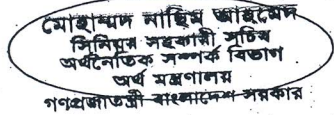 মোহাম্মদ নাছিম আহমেদ
সিনিয়র সহকারী সচিব
অর্থনৈতিক সম্পর্ক বিভাগ
অর্থ মন্ত্রণালয়
গণপ্রজাতন্ত্রী বাংলাদেশ সরকার